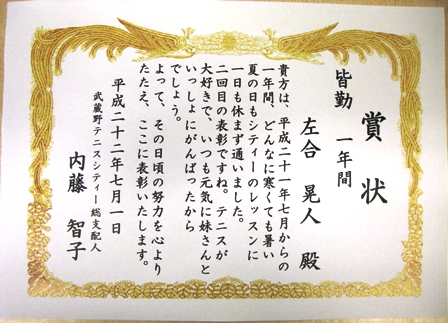 賞状
皆勤 一年間
左合 晃人 殿
貴方は、平成二十一年七月からの
一年間、どんなに寒くても暑い
夏の日もシティーのレッスンに
一日も休まず通いました。
二回目の表彰ですね。テニスが
大好きで、いつも元気に妹さんと
いっしょにがんばったから
でしょう。
よって、その日頃の努力を心より
たたえ、ここに表彰いたします。
平成二十二年七月一日
武蔵野テニスシティー総支配人
内藤 智子